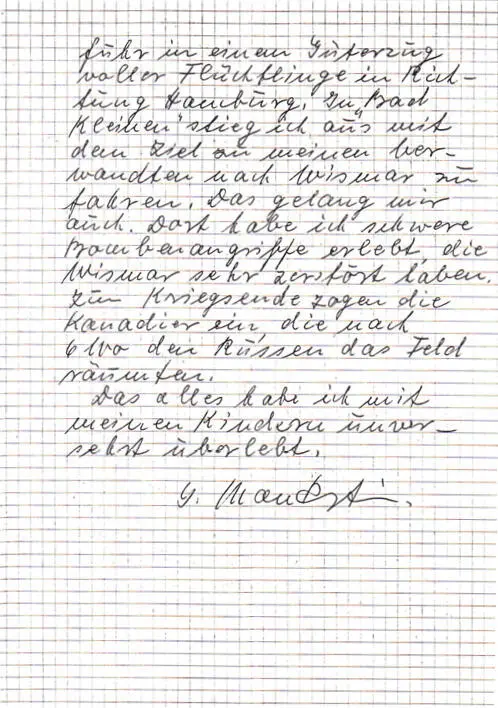 fuhr in einen Güterzug
voller Flüchtlinge in Rich-
tung Hamburg. In "Bad
Kleinen" stieg ich aus mit
dem Ziel zu meinen Ver-
wandten nach Wismar zu
fahren. Das gelang mir
auch. Dort habe ich schwere
Bombenangriffe erlebt, die
Wismar sehr zerstört haben.
Zum Kriegsende zogen die
Kanadier ein, die nach
6 Wo den Russen das Feld
räumten.
Das alles habe ich mit
meinen Kindern unver-
sehrt überlebt.
G.